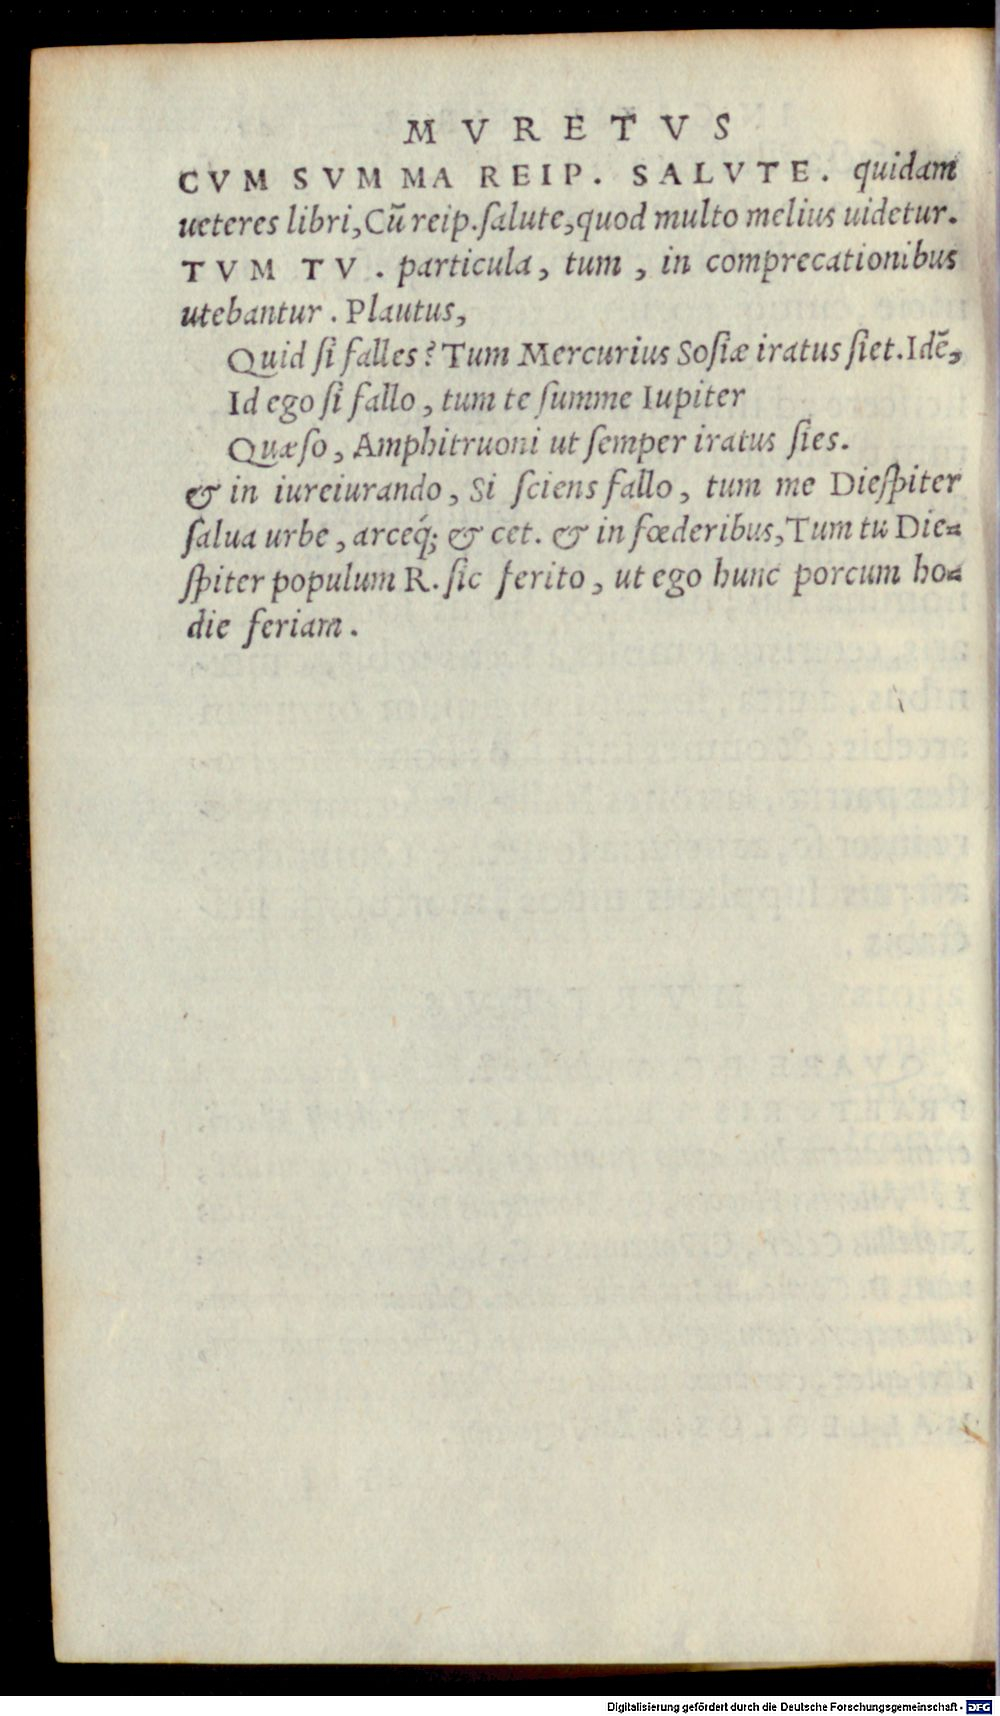 MVRETVS
CVM SVMMA REIP. SALVTE. quidam
ueteres libri, Cũ reip. ſalute, quod multo melius uidetur.
TVM TV. particula, tum, in comprecationibus
utebantur. Plautus,
Quid ſi falles? Tum Mercurius Soſiæ iratus ſiet. Idẽ,
Id ego ſi fallo, tum te ſumme Iupiter
Quæſo, Amphitruoni ut ſemper iratus ſies.
& in iureiurando, Si ſciens fallo, tum me Dieſpiter
ſalua urbe, arceq́; & cet. & in fœderibus, Tum tu Die-
ſpiter populum R. ſic ferito, ut ego hunc porcum ho-
die feriam.
Digitalisierung gefördert durch die Deutsche Forschungsgemeinschaft - DFG